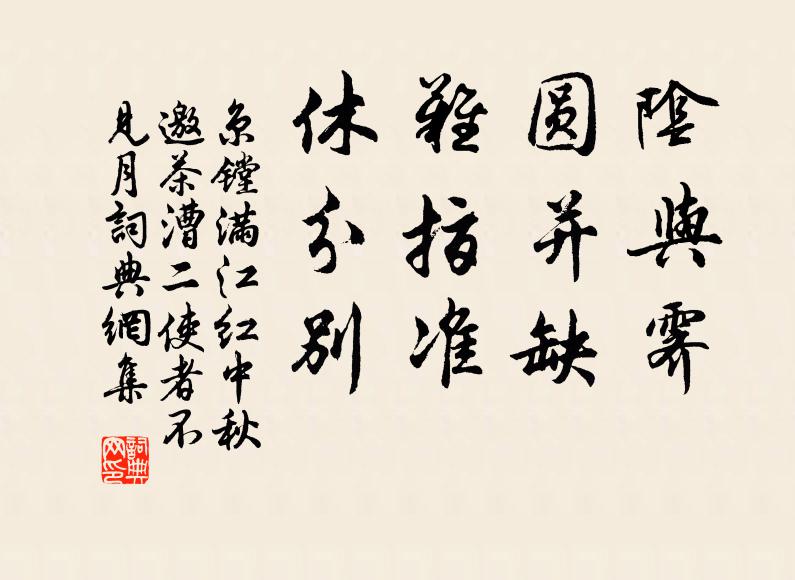 陰與霽
圆并缺
難指准
休分別
京镗满江红中秋
邀茶漕二使者不
見月詞典網集
詞典网印